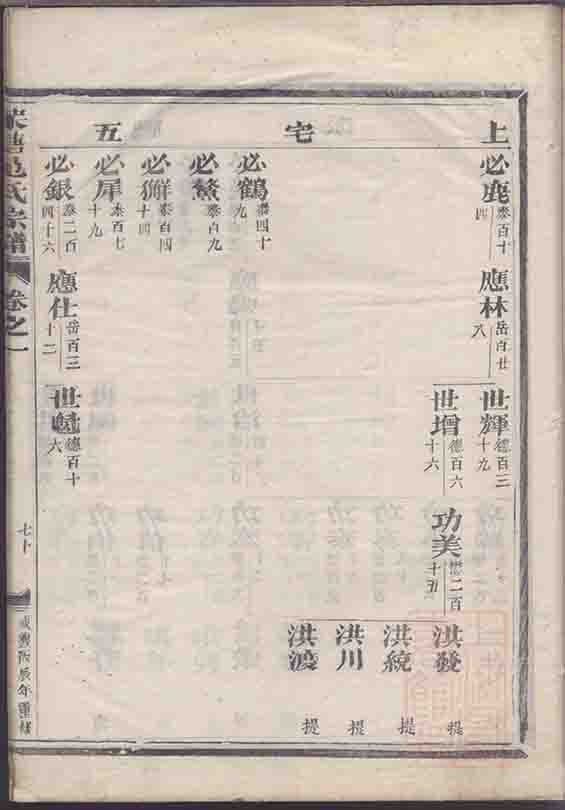 上宅五
必鹿 泰百十四
應林 岳百廿八
世輝 德百三十九
世增 德百六十六
功美 懋二百十五
洪發 提
洪統 提
洪川 提
洪渡 提
必鶴 泰四十九
必鰲 泰百九
必獬 泰百四十四
必犀 泰百七十九
必銀 泰二百四十六
應仕 岳百三十二
世 德百十六
氏宗譜
卷之一
七十
咸豐丙辰年重修